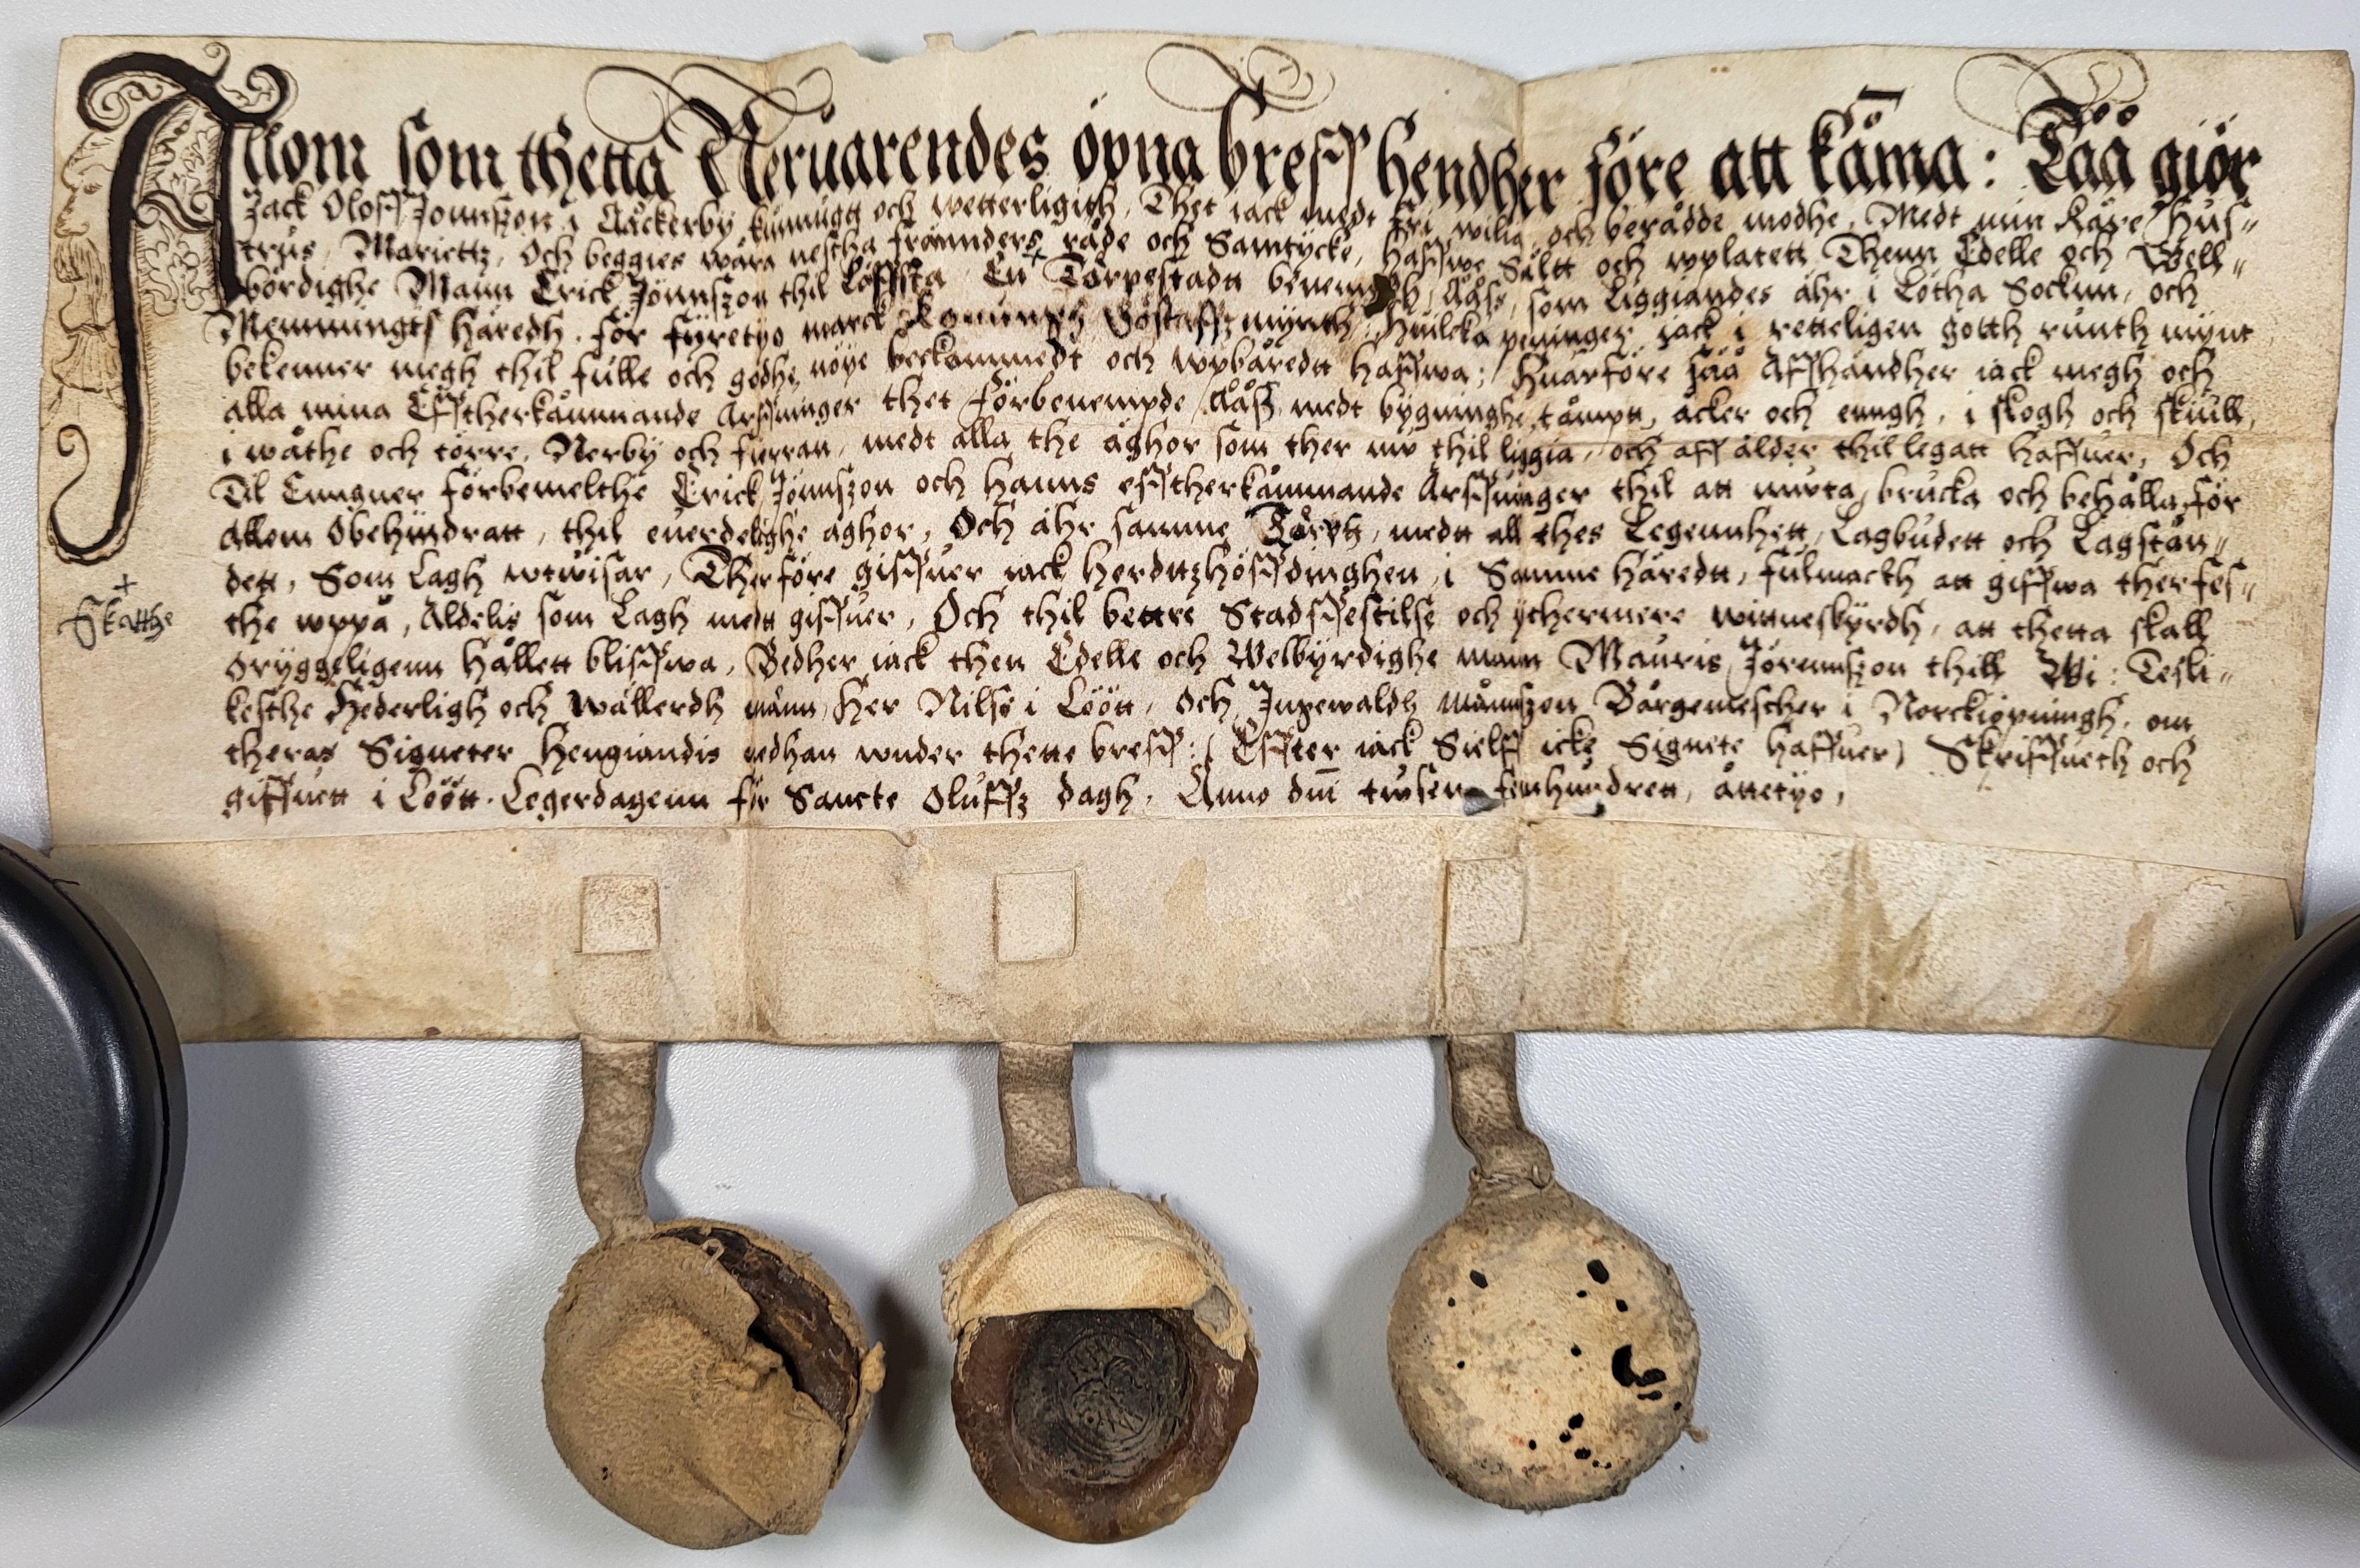 Allom som thetta Neruarendes öpna breff hendher före att kåma: Tåå giör
Jack Oloff Jonnszon i Ååckerby kunnugtt och wetterligith, Thet iack medt fri wilia och berådde modhe, Medt min käre hus„
trus, Mariettz, Och beggies wåra neste frännders råde och Samtÿcke, haffwe Såltt och wplatett Thenn Edelle och Well„
bördighe Mann Erick Jönnszon thil Löffsta En + Tårpestadtt benemdh, Åås, som liggiandes ähr i Lötha Socknn, och
Memmingis häredh, för fÿretÿo marck Konungh Göstaffz mÿnth, Huilcka peninger iack i retteligen gotth runth mÿnt
bekenner megh thil fulle och godhe nöÿe beckommedt och wpbåredtt haffwa; Huarföre såå Affhändher iack megh och
alla mina Efftherkåmmande Arffuinger thet förbenempde Ååß, medt bÿgninghe, tåmptt, åcker och enngh, i skogh och skiull,
i wåthe och torre, Nerbÿ och fierran, medt alla the äghor som ther nw thil liggia, och aff ålder thil legatt haffuer, Och
Til Eungner förbemelthe Erick Jönnszon och hanns efftherkåmmande Arffuinger thil att niuta, brucka och behålla, för
allom Obehindratt, thil euerdelighe äghor, Och ähr samme Tårph, medtt all thes Legennhett, Lagbudett och Lagstån„
dett, Som Lagh wtwisar, Therföre giffuer iack herditzhöffdinghen i Samme häredtt, fulmacth att giffwa ther fes„
the wppå, Aldelis som Lagh medt giffuer, Och thil bettre Stadffestilse och ÿchermere witneskÿrdh, att thetta skall
orÿggeligenn hållett bliffwa, Bedher iack then Edelle och Welbÿrdighe mann Mauris Jörennszon thill Wi: Tesli„
kesthe Hederligh och wällerdh männ, Her Nilss i Löött, Och Ingewaldh månnszon Bårgemescher i Norckiöpningh, om
theras Signeter hengiandis nedhan wnder thette breff: (Effter iack Sielff icke Signete haffuer) Skriffueth och
giffuett i Löött. Legerdagenn för Sancte Oluffz dagh, Anno dm̄ twsen femhundrett, åttetÿo,
+
Skatthe